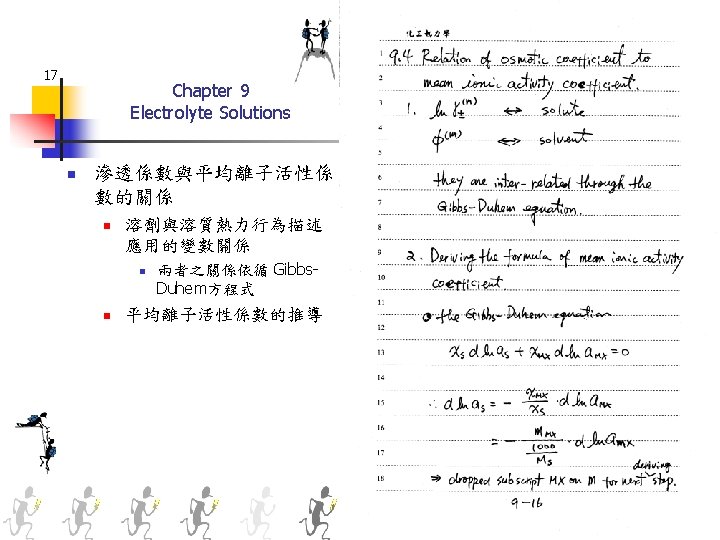 17
Chapter 9
Electrolyte Solutions
滲透係數與平均離子活性係
數的關係
溶劑與溶質熱力行為描述
應用的變數關係
兩者之關係依循 Gibbs-
Duhem方程式
平均離子活性係數的推導
化工熱力學
1 9.4 Relation of osmotic coefficient to
2 mean ionic activity coefficient.
3 1. ln γ±^(m) ↔ solute
4
5 φ^(m) ⇔ solvent
6
7 they are inter-related through the
8 Gibbs-Duhem equation.
9 2. Deriving the formula of mean ionic activity
10 coefficient.
11
12 the Gibbs-Duhem equation
13 x_s d ln a_s + x_MX d ln a_MX = 0
14
15 ∴ d ln a_s = - x_MX/x_s · d ln a_MX
16
17 = - m_MX/(1000/M_s) · d ln a_MX
deriving
18 ⇒ dropped subscript MX on m for next step.
9-16